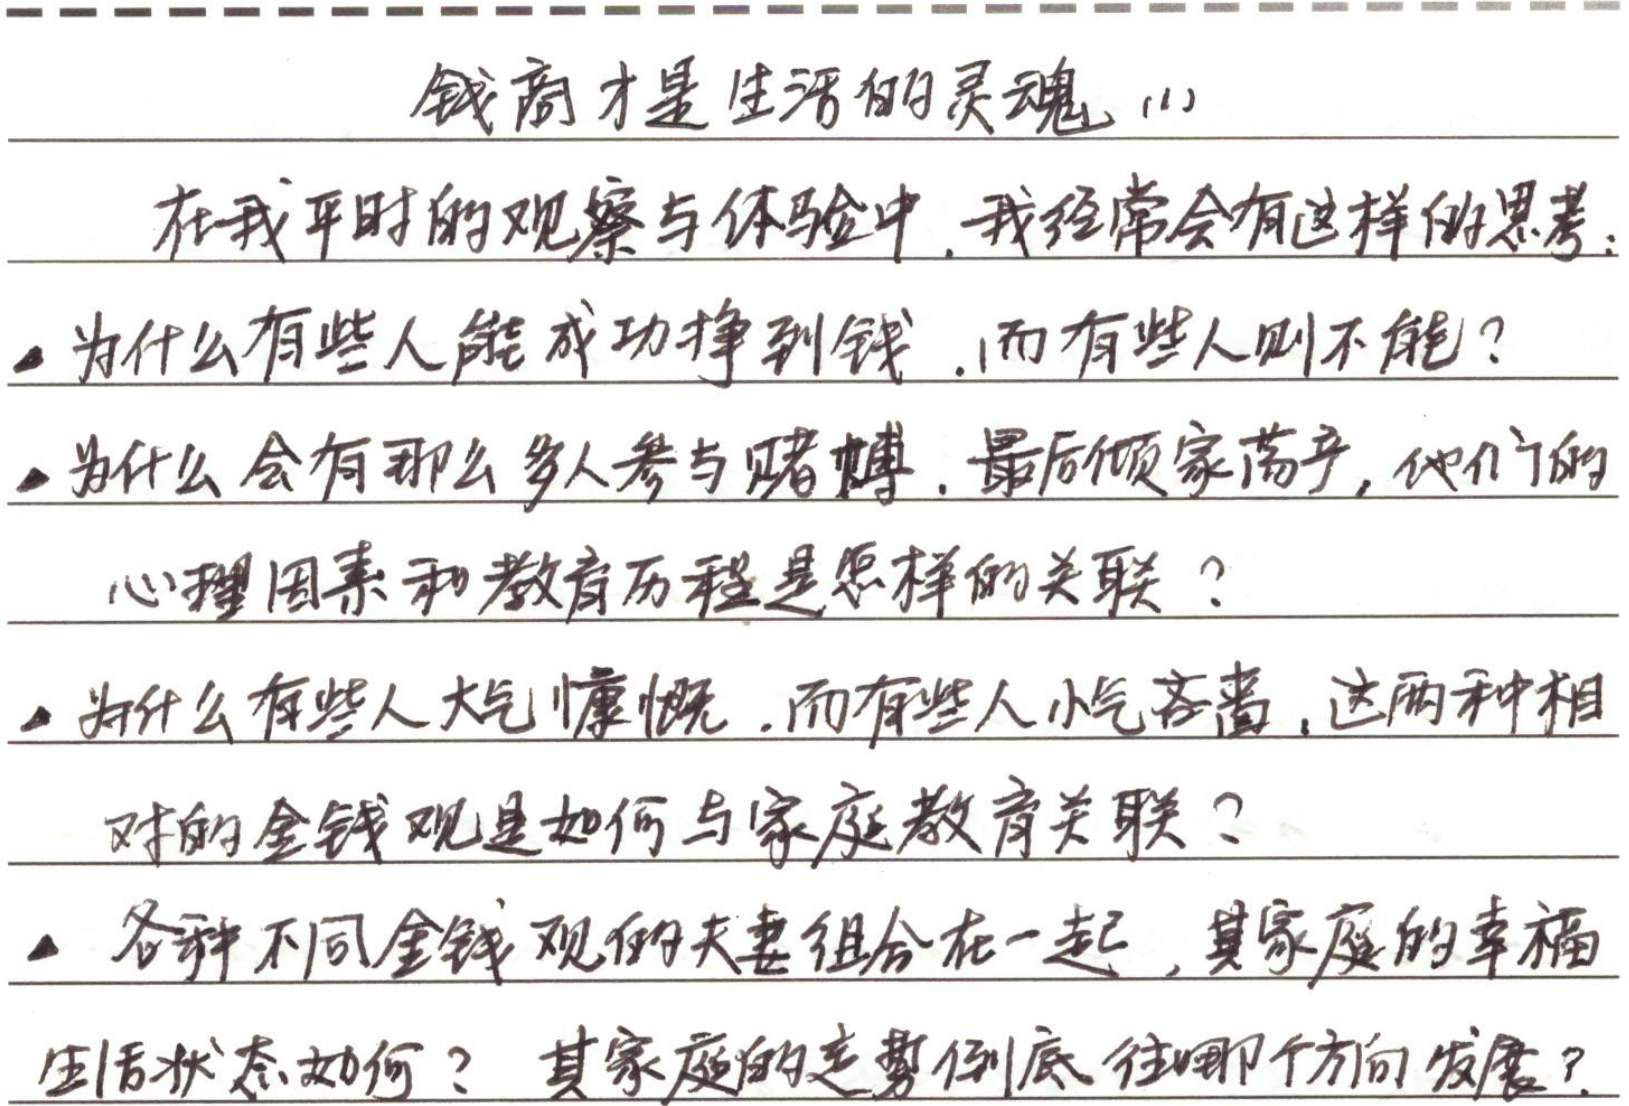 钱商才是生活的灵魂(1)
在我平时的观察与体验中,我经常会有这样的思考:
▲为什么有些人能成功挣到钱,而有些人则不能?
▲为什么会有那么多人参与赌博,最后倾家荡产,他们的
心理因素和教育历程是怎样的关联?
▲为什么有些人大气慷慨,而有些人小气吝啬,这两种相
对的金钱观是如何与家庭教育关联?
▲各种不同金钱观的夫妻组合在一起,其家庭的幸福
生活状态如何?其家庭的走势到底往哪个方向发展?